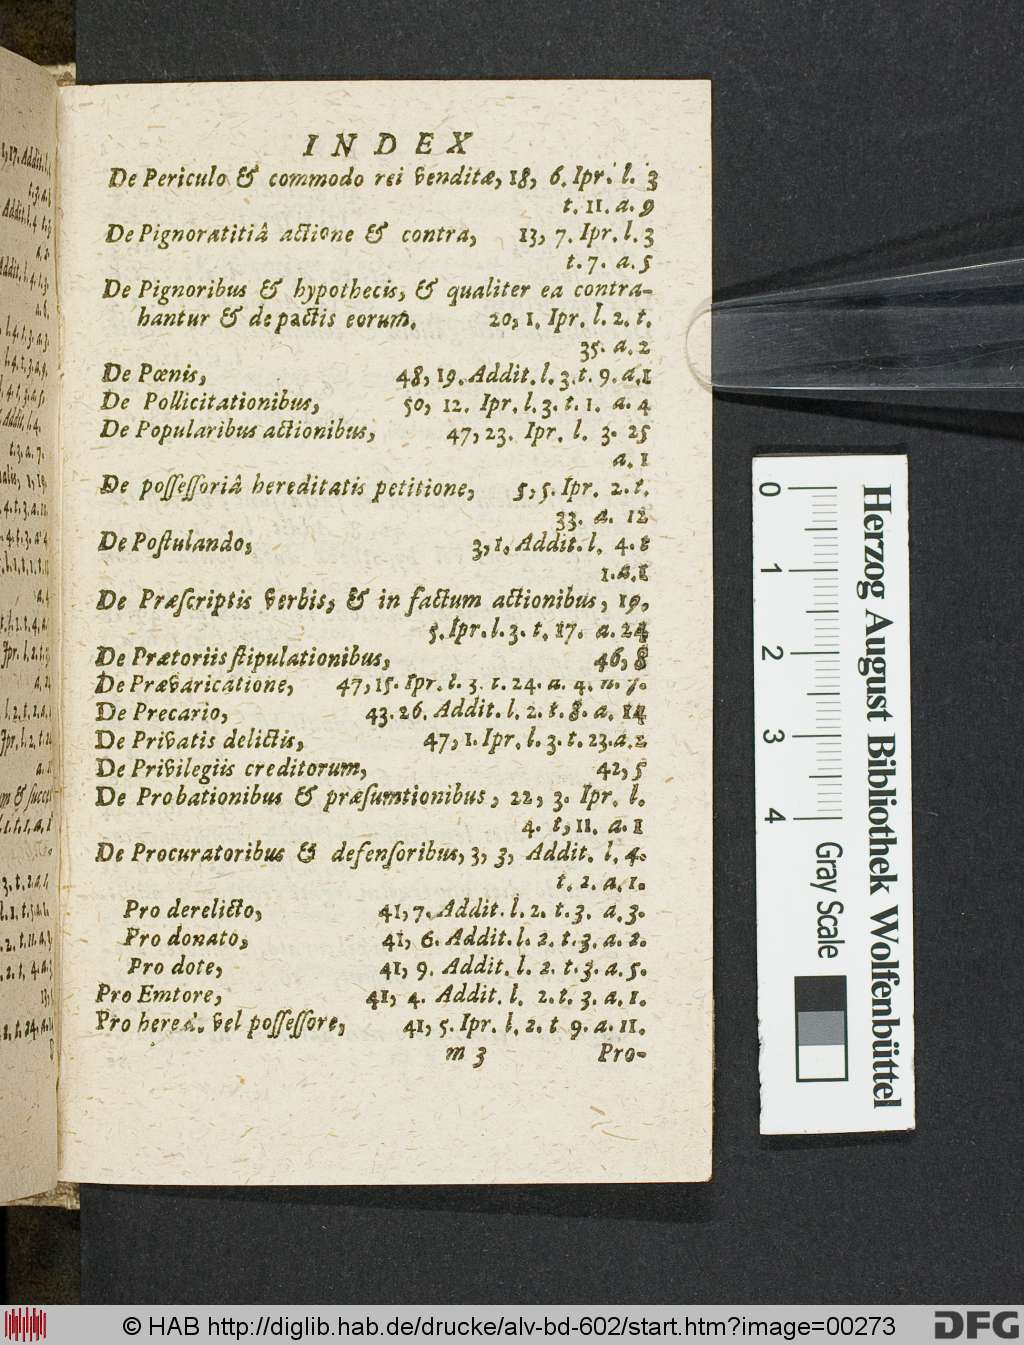 INDEX
De Periculo & commodo rei venditæ, 18, 6. Ipr. l. 3
t. 11. a. 9
De Pignoratitiâ actione & contra, 13, 7. Ipr. l. 3
t. 7. a. 5
De Pignoribus & hypothecis, & qualiter ea contra-
hantur & de pactis eorum. 20, 1. Ipr. l. 2. t.
35. a. 2
De Pœnis, 48, 19. Addit. l. 3. t. 9. a. 1
De Pollicitationibus, 50, 12. Ipr. l. 3. t. 1. a. 4
De Popularibus actionibus, 47, 23. Ipr. l. 3. 25
a. 1
De poſſeſſoriâ hereditatis petitione, 5, 5. Ipr. 2. t.
33. a. 12
De Poſtulando, 3, 1. Addit. l. 4. t
1. a. 1
De Præſcriptis verbis, & in factum actionibus, 19,
5. Ipr. l. 3. t. 17. a. 24
De Prætoriis ſtipulationibus, 46, 8
De Prævaricatione, 47, 15. Ipr. l. 3. t. 24. a. 4. n. 7.
De Precario, 43. 26. Addit. l. 2. t. 8. a. 14
De Privatis delictis, 47, 1. Ipr. l. 3. t. 23. a. 2
De Privilegiis creditorum, 42, 5
De Probationibus & præſumtionibus, 22, 3. Ipr. l.
4. t, 11. a. 1
De Procuratoribus & defenſoribus, 3, 3, Addit. l. 4.
t. 2. a. 1.
Pro derelicto, 41, 7. Addit. l. 2. t. 3. a. 3.
Pro donato, 41, 6. Addit. l. 2. t. 3. a. 2.
Pro dote, 41, 9. Addit. l. 2. t. 3. a. 5.
Pro Emtore, 41, 4. Addit. l. 2. t. 3. a. 1.
Pro hered. vel poſſeſſore, 41, 5. Ipr. l. 2. t 9. a. 11.
m 3 Pro-
0 1 2 3 4
Gray Scale
Herzog August Bibliothek Wolfenbüttel
© HAB http://diglib.hab.de/drucke/alv-bd-602/start.htm?image=00273
DFG